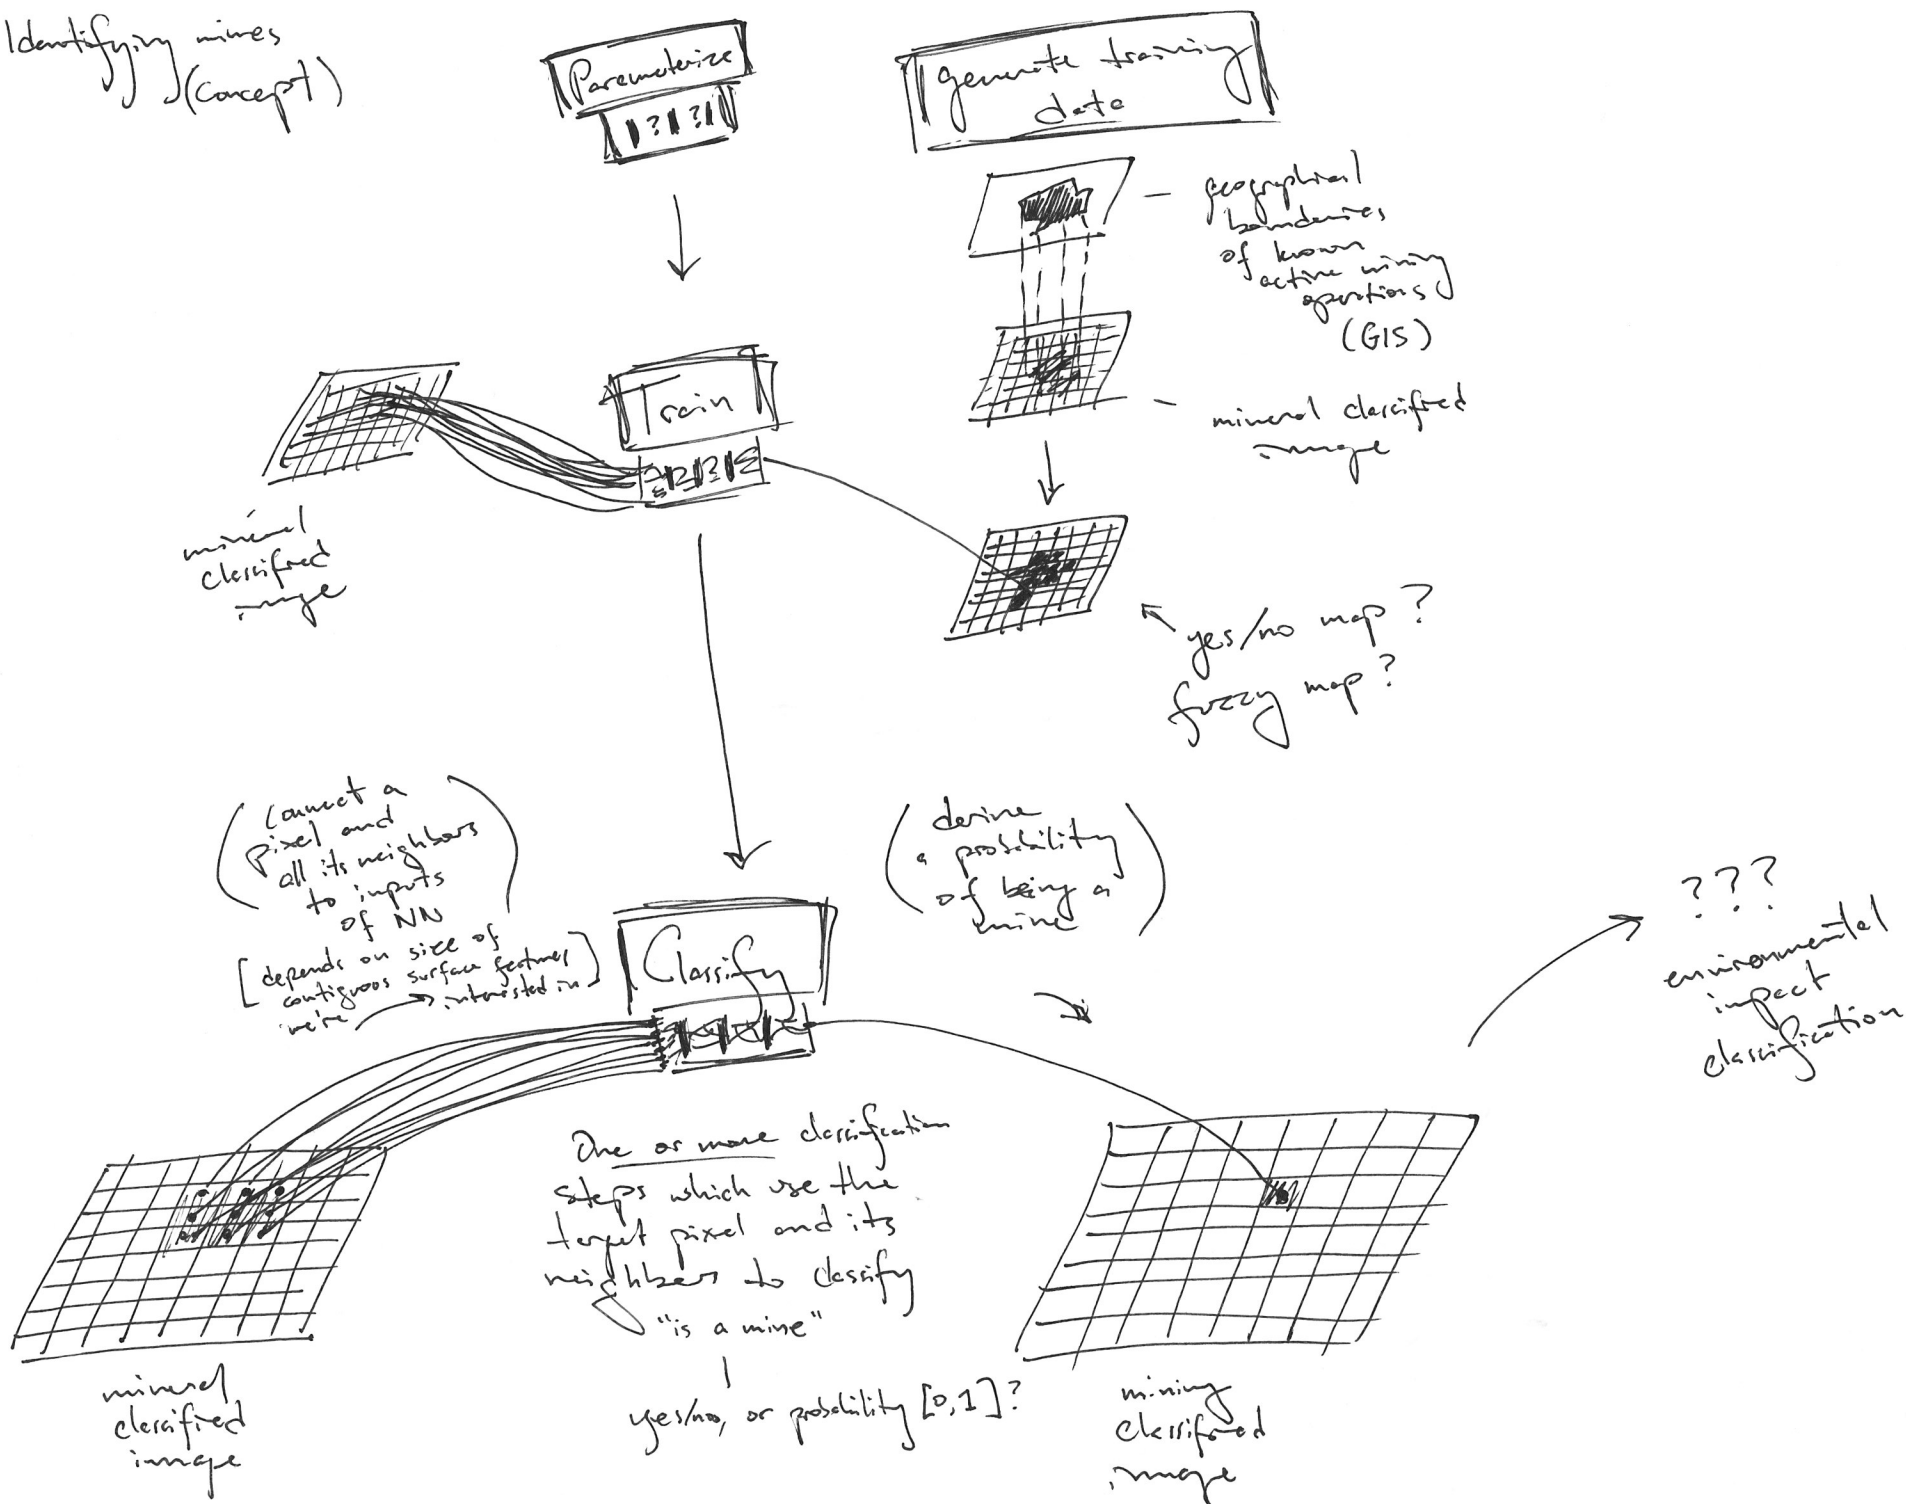 Identifying mines
(concept)
Parameterize
? ?
generate training
data
geographical
boundaries
of known
active mining
operations
(GIS)
mineral classified
image
Train
mineral
classified
image
yes/no map?
fuzzy map?
(connect a
pixel and
all its neighbors
to inputs
of NN)
[depends on size of
contiguous surface features
we're → interested in]
(derive
a probability
of being a
mine)
Classify
???
environmental
impact
classification
One or more classification
steps which use the
target pixel and its
neighbors to classify
"is a mine"
yes/no, or probability [0,1]?
mineral
classified
image
mining
classified
image